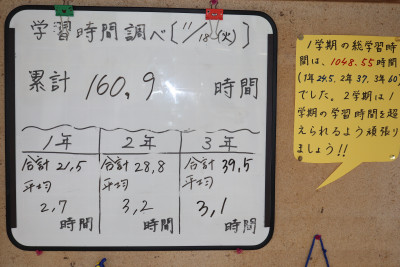 学習時間調べ〔11/18(火)〕
累計 160.9 時間
1年
合計 21.5
平均
2.7
時間
2年
合計 28.8
平均
3.2
時間
3年
合計 39.5
平均
3.1
時間
1学期の総学習時
間は、1048.55時間
でした。2学期は1
学期の学習時間を超
えられるよう頑張り
ましょう!!